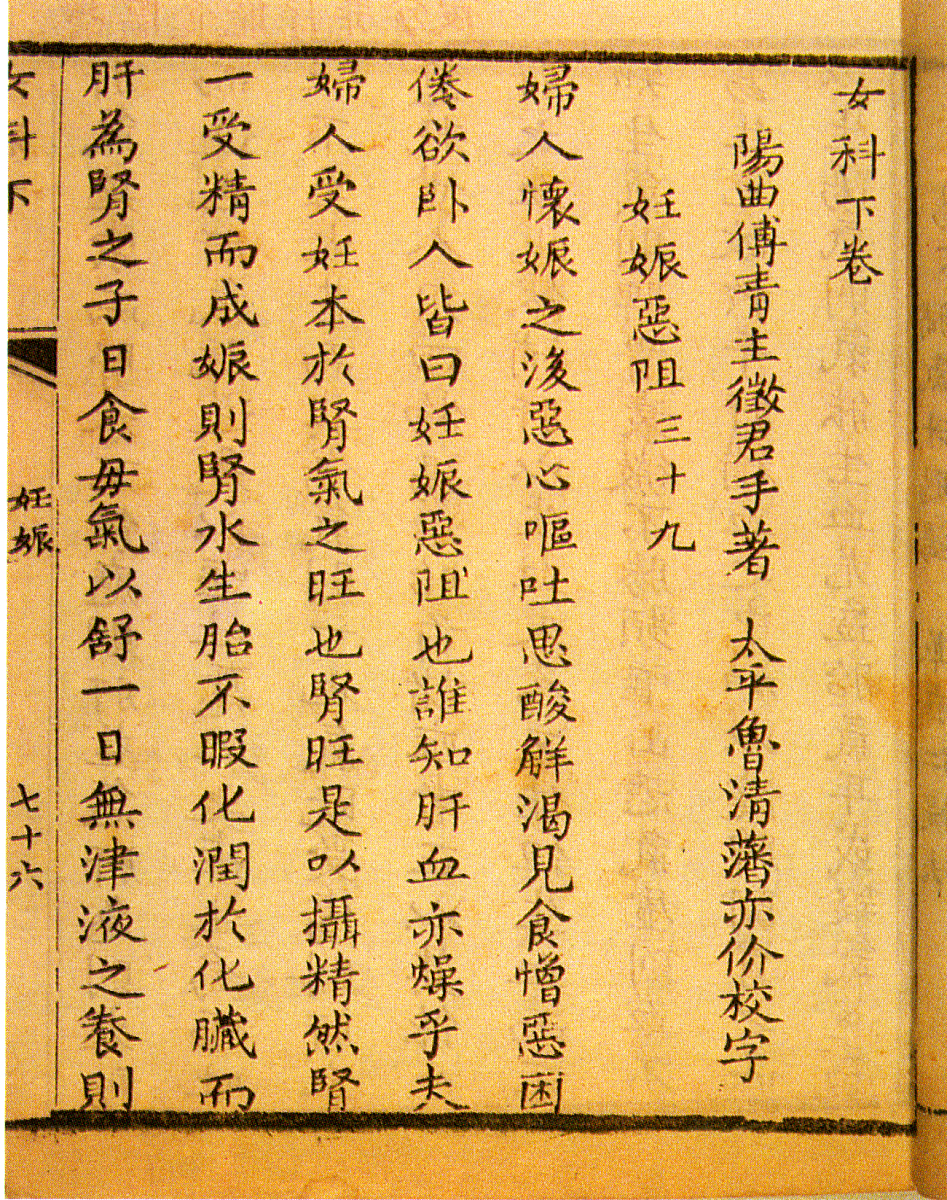 女科下卷
陽曲傅青主徵君手著 太平魯清藩亦价校字
妊娠惡阻三十九
婦人懷娠之後惡心嘔吐思酸解渴見食憎惡困
倦欲卧人皆曰妊娠惡阻也誰知肝血亦燥乎夫
婦人受妊本於腎氣之旺也腎旺是以攝精然腎
一受精而成娠則腎水生胎不暇化潤於化臟而
肝為腎之子日食母氣以舒一日無津液之養則
女科下
妊娠
七十六